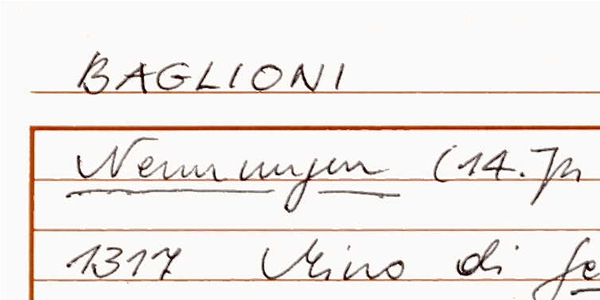 BAGLIONI
Nennungen (14. Jh
1317 Mino di